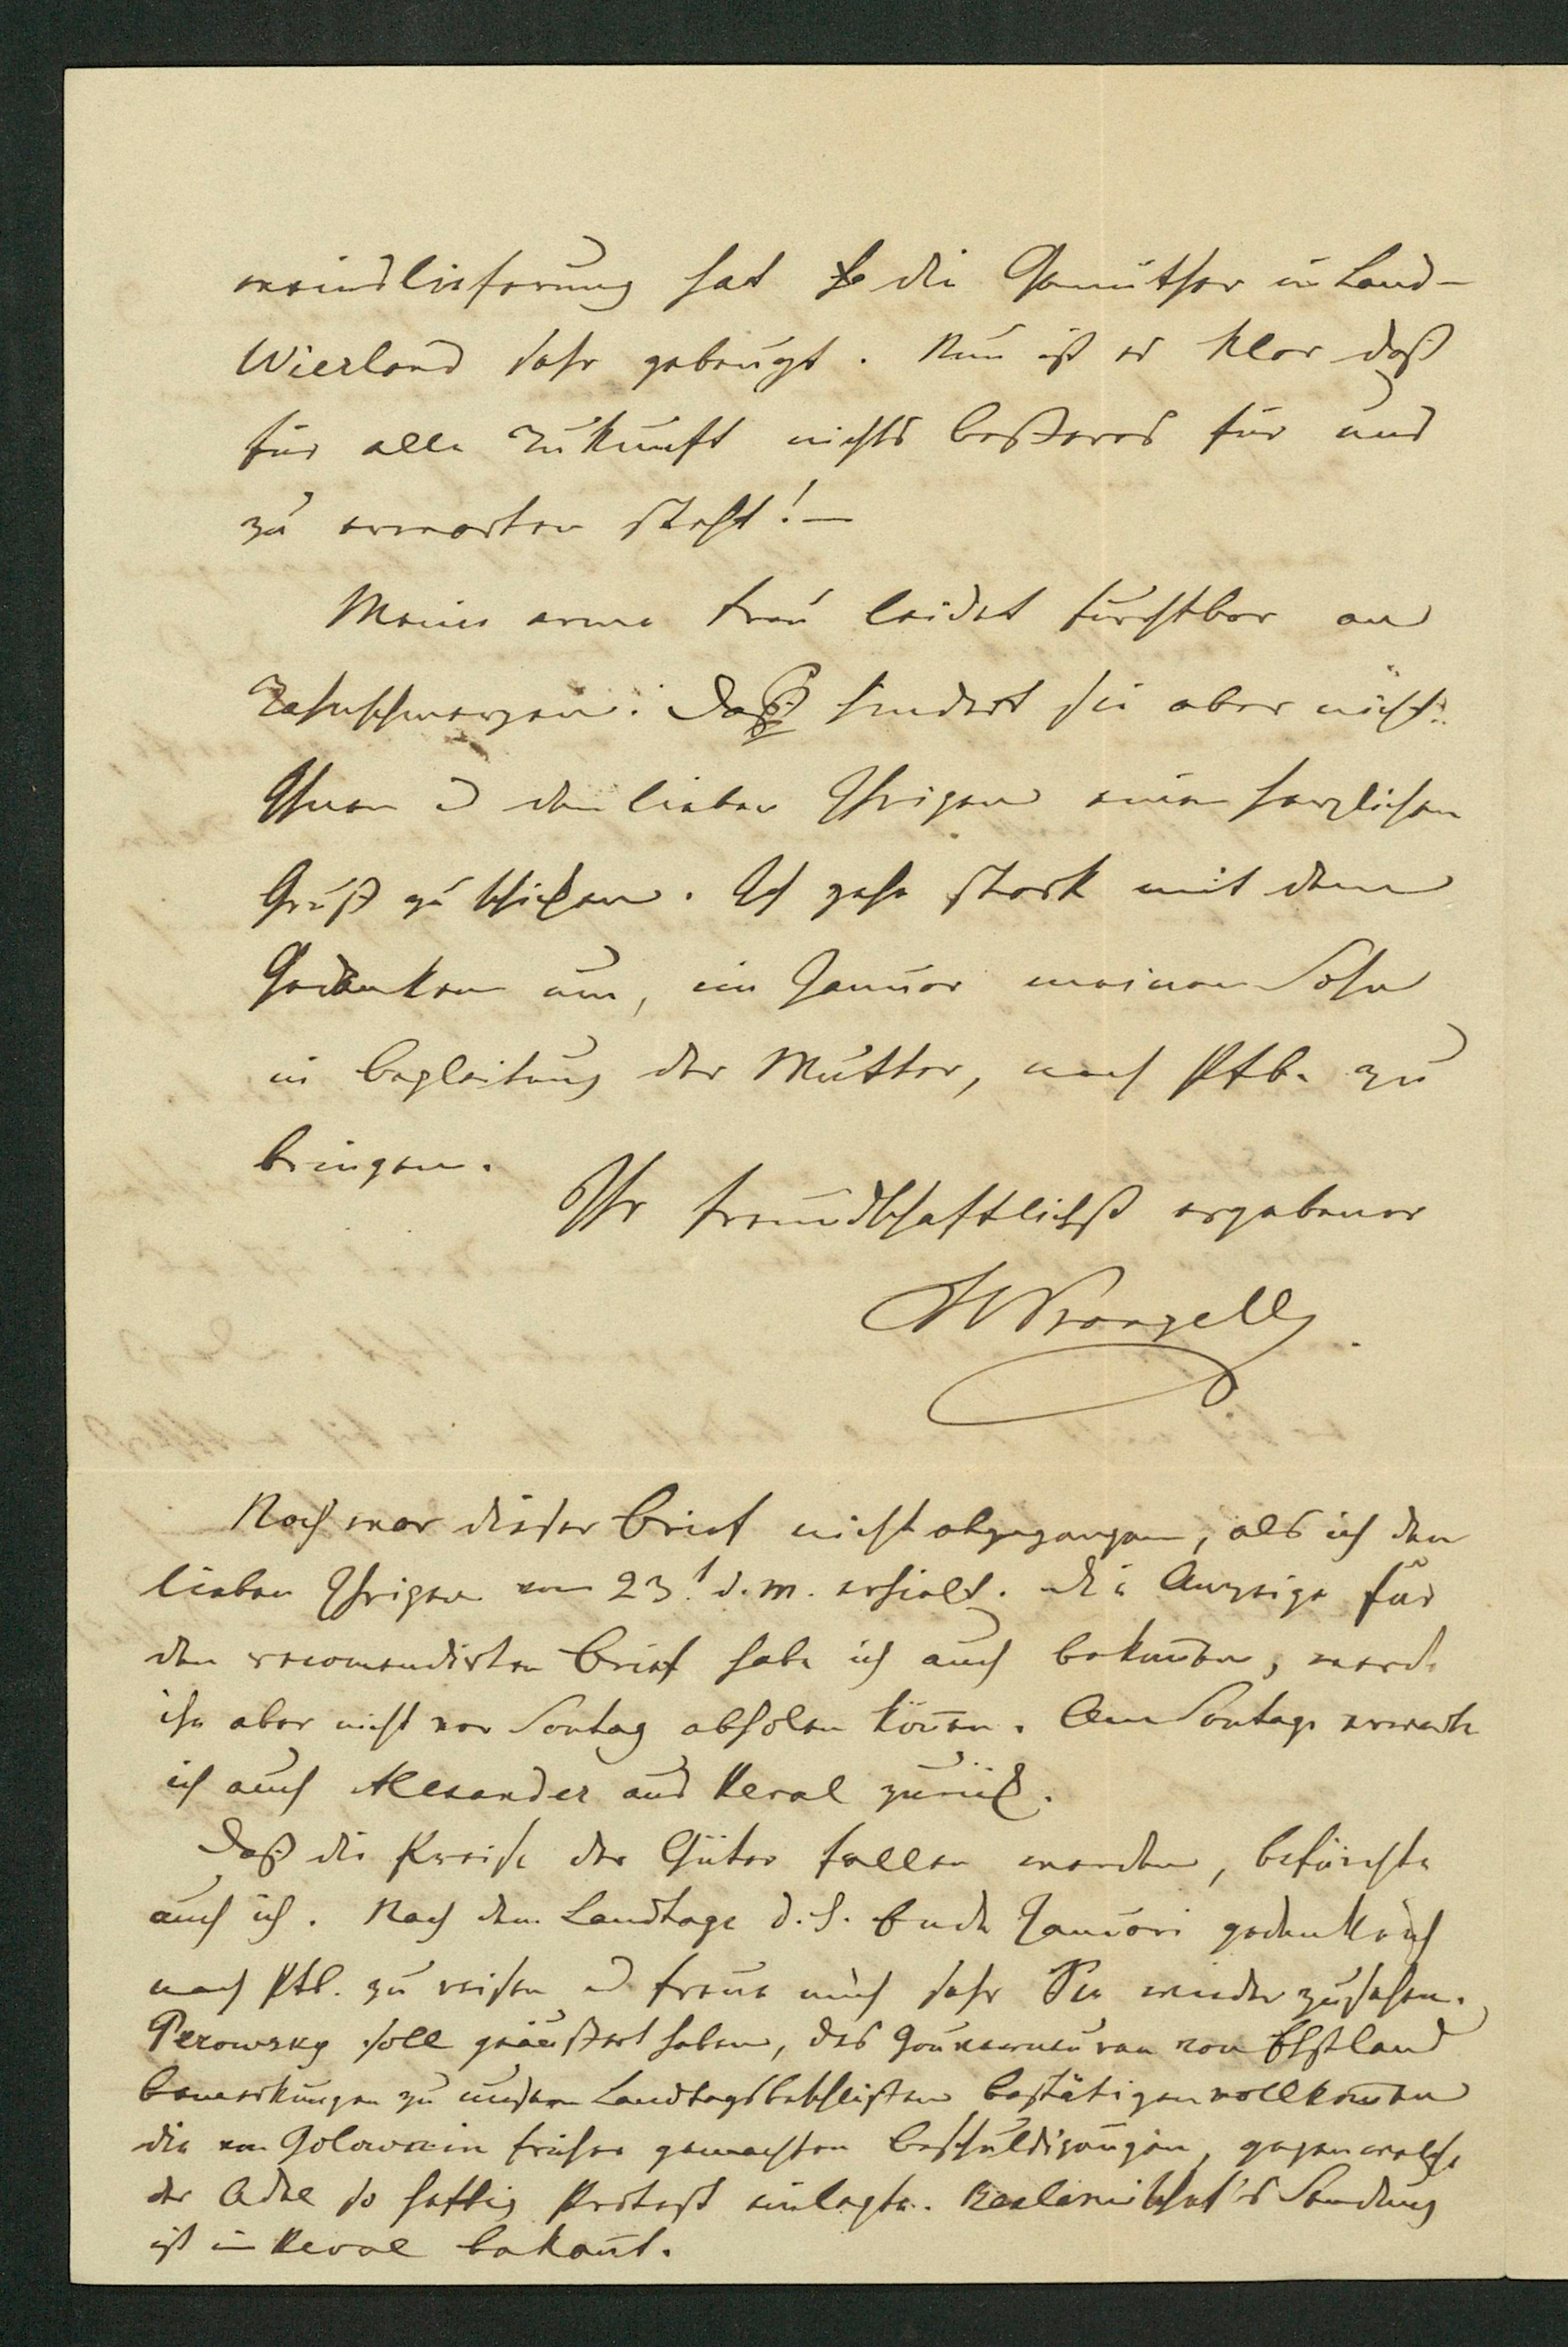 meindlieferung hat die Gemüther in Land-
Wierland sehr gebeugt. Nun ist es klar daß
für alle Zukunft nichts beßeres für uns
zu erwarten steht! —
Meine arme Frau leidet furchtbar an
Zahnschmerzen. Daß hindert sie aber nicht
Ihnen u den lieben Ihrigen einen herzlichen
Gruß zu schicken. Ich gehe stark mit dem
Gedanken um, im Januar meinen Sohn
in Begleitung der Mutter, nach Ptb. zu
bringen.
Ihr freundschaftlichst ergebener
Wrangell
Noch war dieser Brief nicht abgegangen, als ich den
lieben Ihrigen vom 23t d. M. erhielt. Die Anzeige für
den recomendirten Brief habe ich auch bekom̄en, werde
ihn aber nicht vor Sontag abholen kön̄en. Am Sontage erwarte
ich auch Alexander aus Reval zurück.
Daß die Preise der Güter fallen werden, befürchte
auch ich. Nach dem Landtage d. h. Ende Januari gedenke ich
nach Ptb. zu reisen u freue mich sehr Sie wieder zu sehen.
Perowsky soll geäußert haben, des Gouverneuren von Ehstland
Bemerkungen zu unseren Landtagsbeschlüßen bestätigen vollkom̄en
die von Golownin früher gemachten Beschuldigungen, gegen welche
der Adel so heftig Protest einlegte. Sendung
ist in Reval bekan̄t.